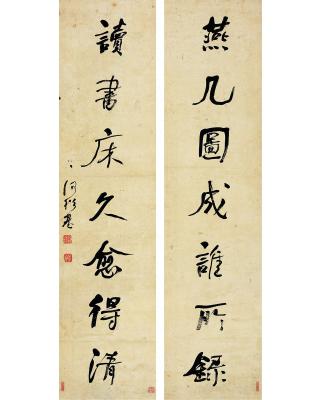 燕几圖成誰所錄
讀書床久愈得清